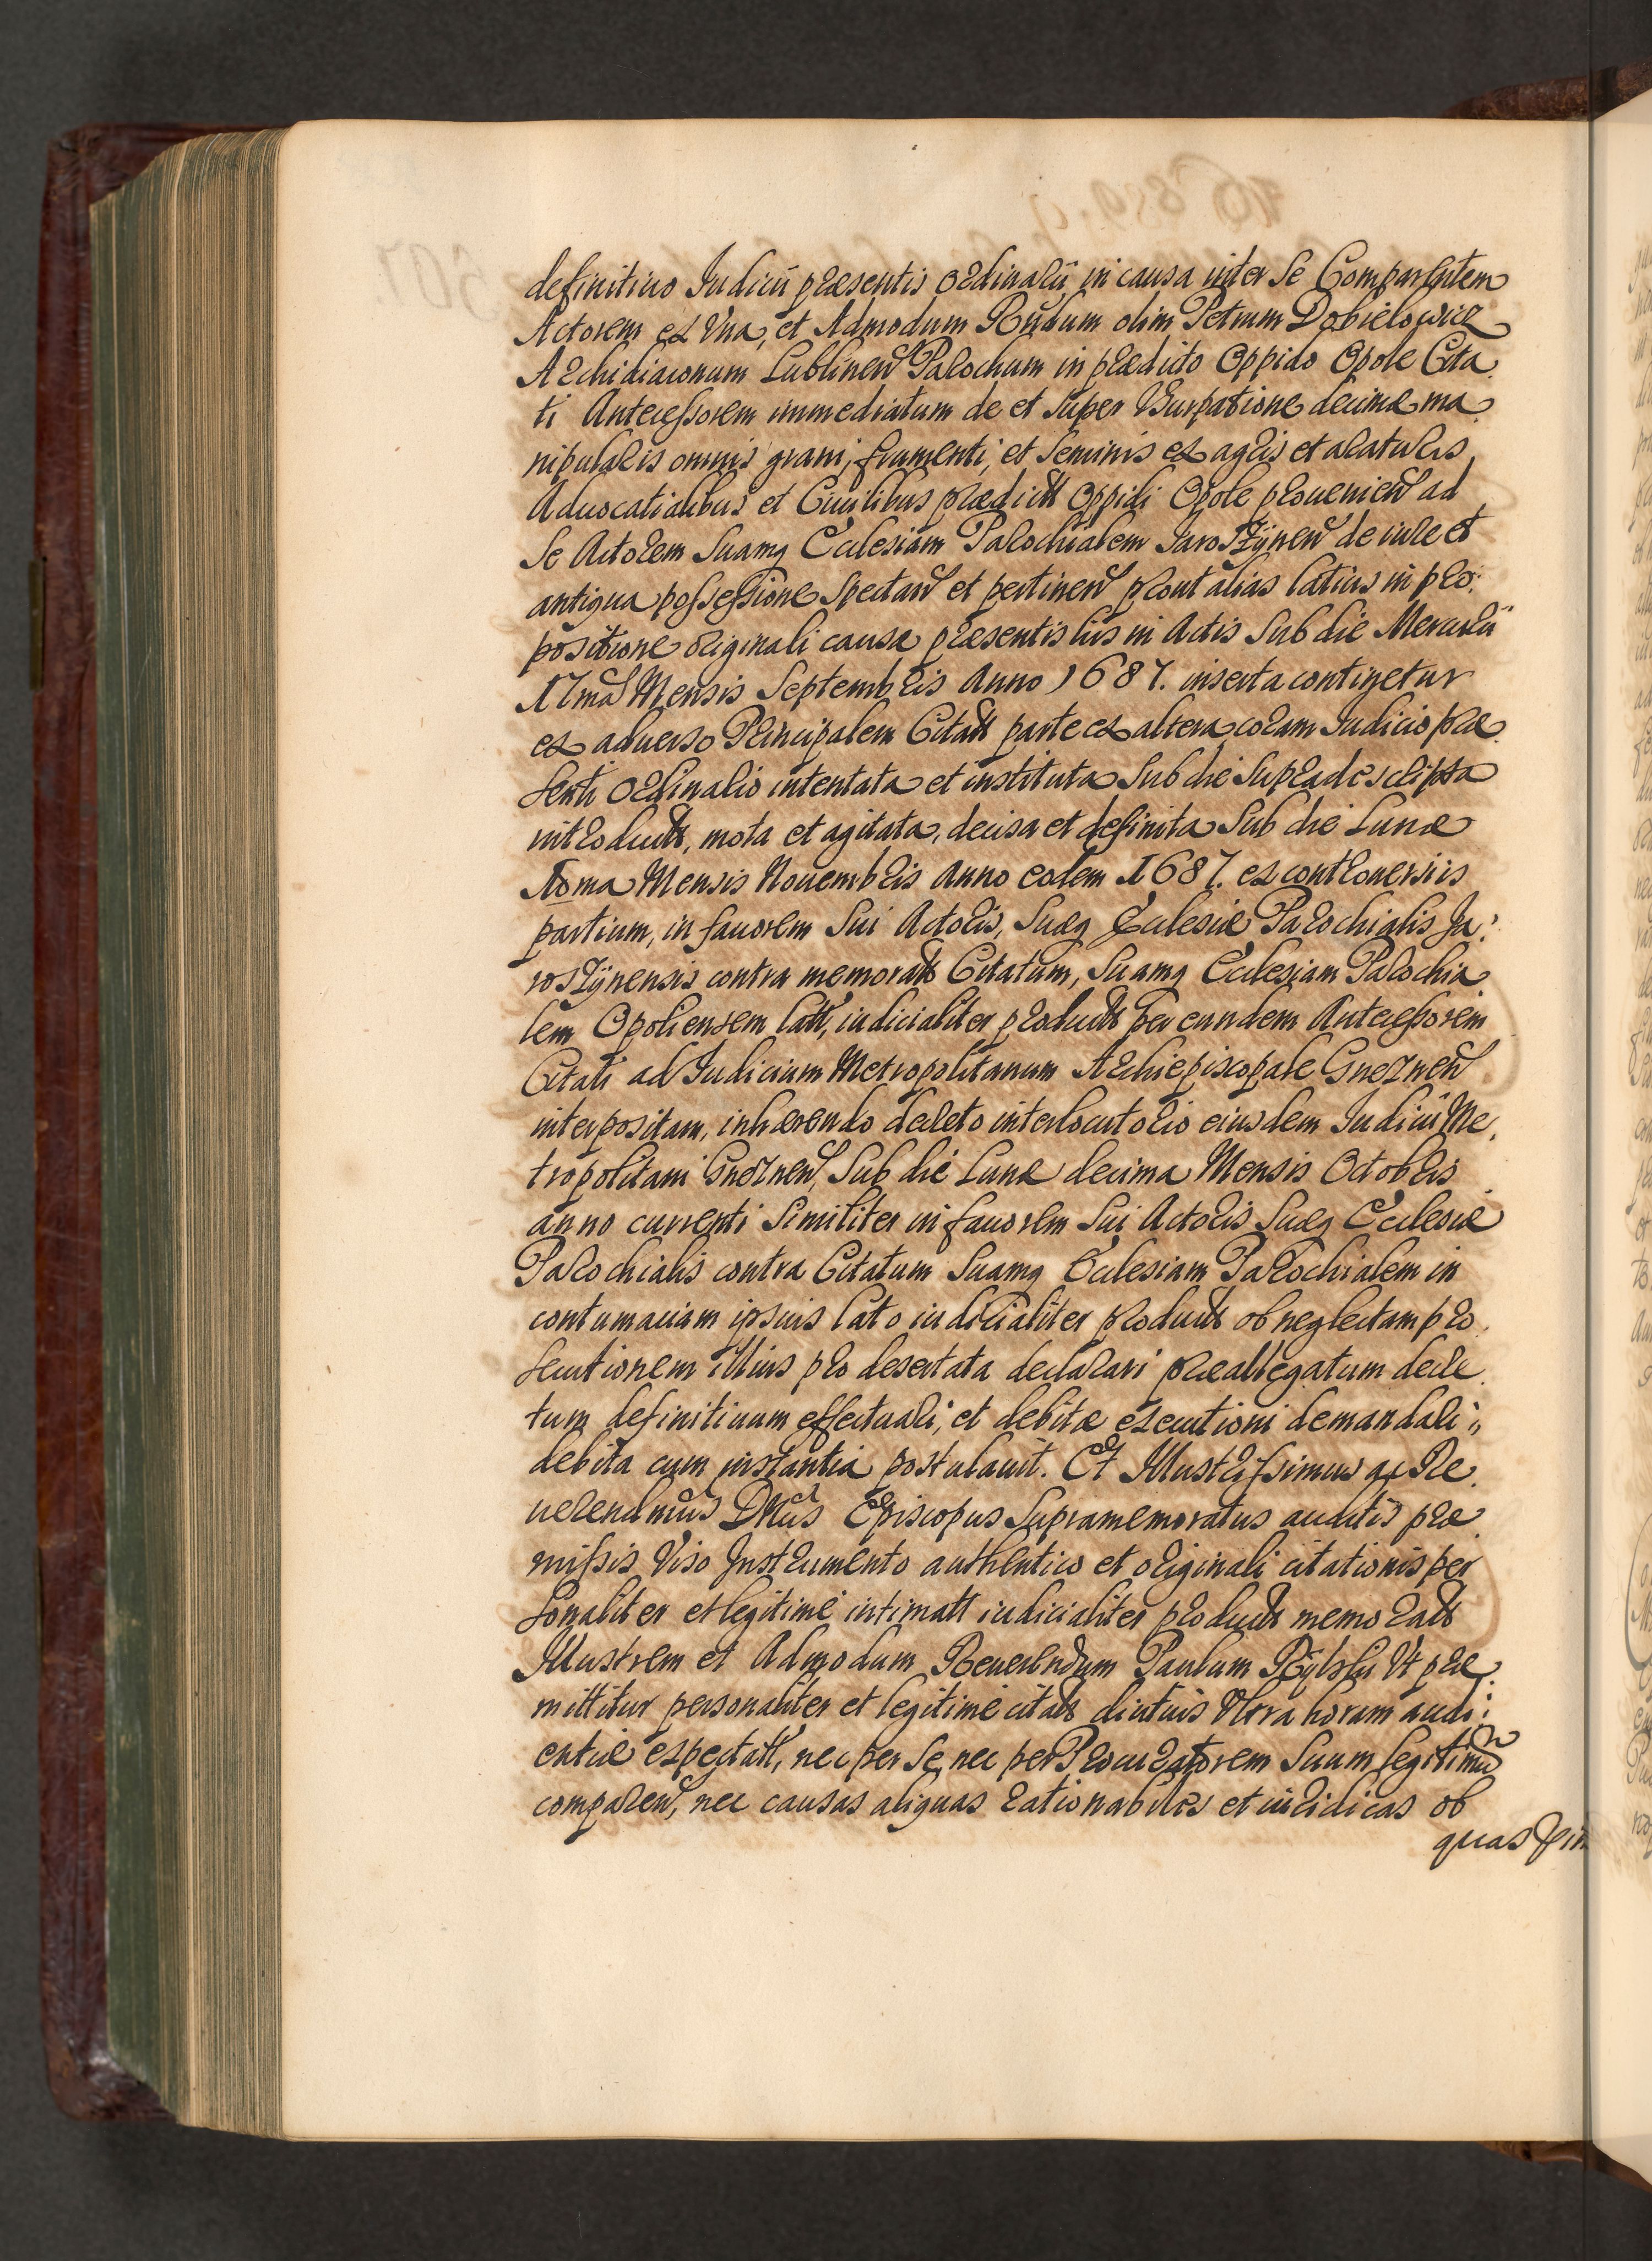 definitiuo Iudicii præsentis ordinarii in causa inter se Comparentem
Actorem ex vna, et Admodum Rndum olim Petrum Dobielowicz
Archidiaconum Lublinen Parochum in prædicto Oppido Opole Cita
ti Antecessorem immediatum de et super Vsurpatione decimæ ma
nipularis omnis grani, frumenti, et seminis ex agris et araturis
Aduocatialibus et Ciuilibus prædictt Oppidi Opole prouenien ad
se Actorem suamq Ecclesiam Parochialem Jaroszÿnen de iure et
antiqua possessione spectan et pertinen prout alias latius in pro:
positione originali causæ præsentis liis in Actis sub die Mercurii
17ma Mensis Septembris Anno 1687. inserta continetur
ex aduerso Principalem Citatt parte ex altera coram Iudicio præ
senti ordinario intentata et instituta sub die supradescripta
introductt, mota et agitata, decisa et definita sub die Lunæ
10ma Mensis Nouembris Anno eodem 1687. ex controuersiis
partium, in fauorem sui Actoris, suæq Ecclesiæ Parochialis Ja:
roszÿnensis contra memoratt Citatum, suamq Ecclesiam Parochia
lem Opoliensem latt, iudicialiter productt per eundem Antecessorem
Citati ad Iudicium Metropolitanum Archiepiscopale Gneznen
interpositam, inhærendo decreto interlocutorio eiusdem Iudicii Me,
tropolitani Gneznen, sub die Lunæ decima Mensis Octobris
anno currenti similiter in fauorem sui Actoris suæq Ecclesiæ
Parochialis contra Citatum suamq Ecclesiam Parochialem in
contumaciam ipsius lato iudicialiter productt ob neglectam pro
secutionem illius pro desertata declarari præallegatum decre
tum definitiuum effectuari, et debitæ executioni demandari,
debita cum instantia postulauit. Et Illustrissimus ac Re
uerendmus Dnus Episcopus supramemoratus auditis præ
missis Viso Instrumento authentico et originali citationis per
sonaliter et legitime intimatt iudicialiter productt memoratt
Illustrem et Admodum Reuerendum Paulum Rÿbski Vt præ
mittitur personaliter et legitime citatt diutius Vltra horam audi:
entiæ expectatt, nec per se, nec per Procuratorem suum legitimu
comparen, nec causas aliquas rationabiles et iuridicas ob
quas